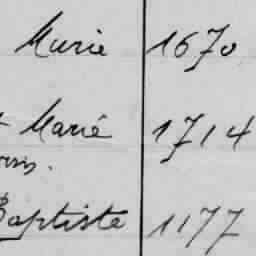 Marie 1670
Marie 1714
Baptiste 1177